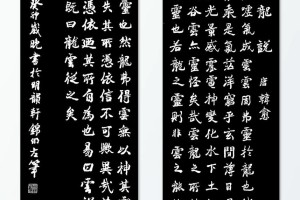 龍說 唐韓愈
噓氣成雲雲固弗靈於龍也
乘是氣茫洋窮乎玄間薄日月
光景感震電神變化水下土
谷雲亦靈怪矣哉雲龍之所能
靈也若龍之靈則非雲之所能
靈也然龍弗得雲無以神其靈
失其所憑依信不可歟異哉
憑依乃其所自為也易曰雲
既曰龍雲從之矣
歲晚書於明韻軒錦 左筆